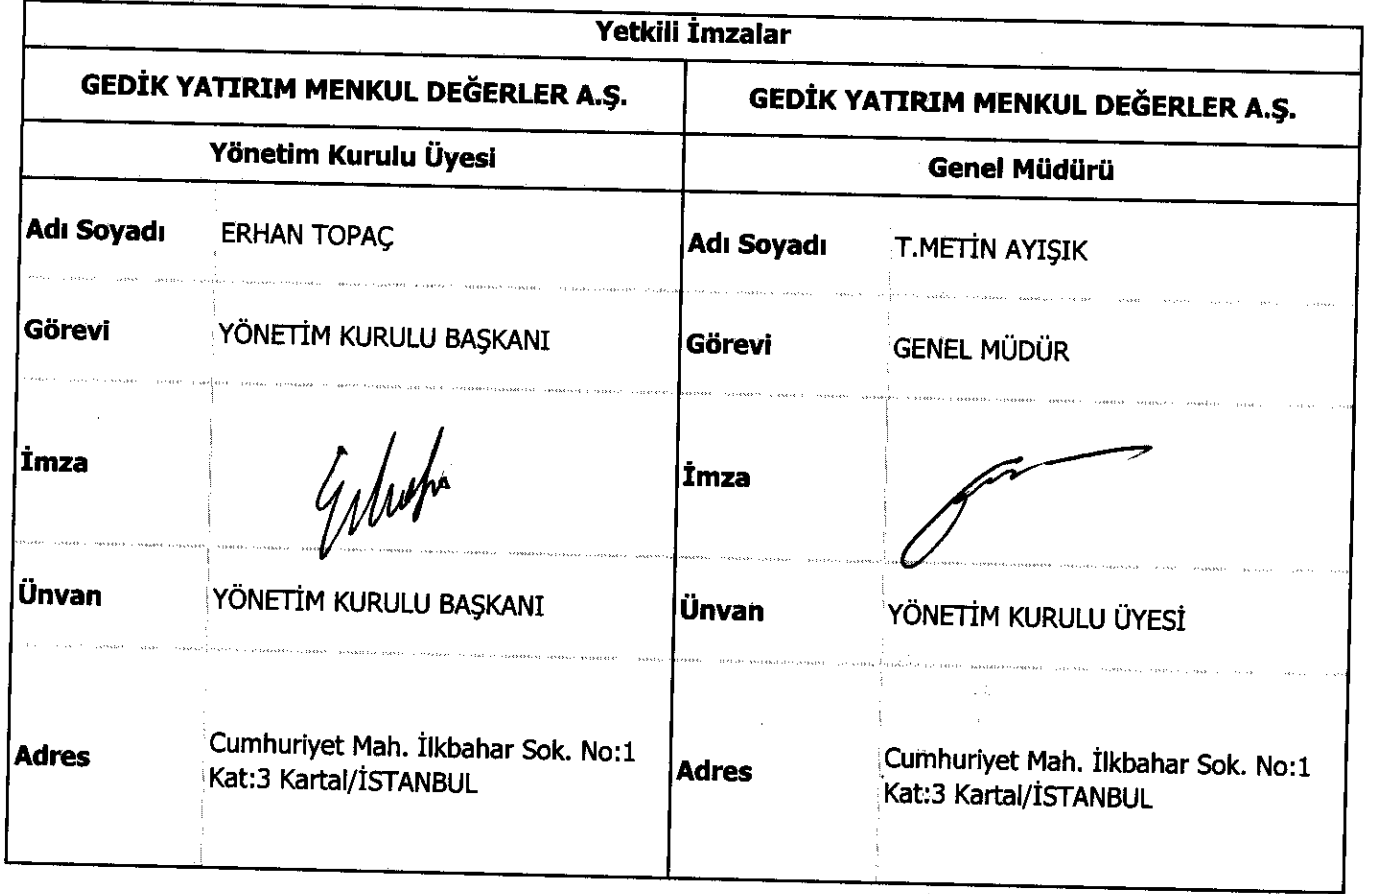 Yetkili İmzalar
GEDİK YATIRIM MENKUL DEĞERLER A.Ş.
GEDİK YATIRIM MENKUL DEĞERLER A.Ş.
Yönetim Kurulu Üyesi
Genel Müdürü
Adı Soyadı
ERHAN TOPAÇ
Adı Soyadı
T.METİN AYIŞIK
Görevi
YÖNETİM KURULU BAŞKANI
Görevi
GENEL MÜDÜR
İmza
İmza
Ünvan
YÖNETİM KURULU BAŞKANI
Ünvan
YÖNETİM KURULU ÜYESİ
Adres
Cumhuriyet Mah. İlkbahar Sok. No:1
Kat:3 Kartal/İSTANBUL
Adres
Cumhuriyet Mah. İlkbahar Sok. No:1
Kat:3 Kartal/İSTANBUL